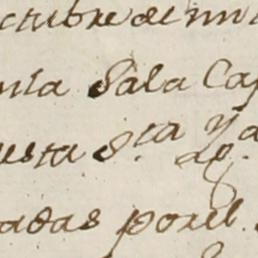 ctubre de mil
nla Sala Cap
usta S.ta Ya
adas porel.